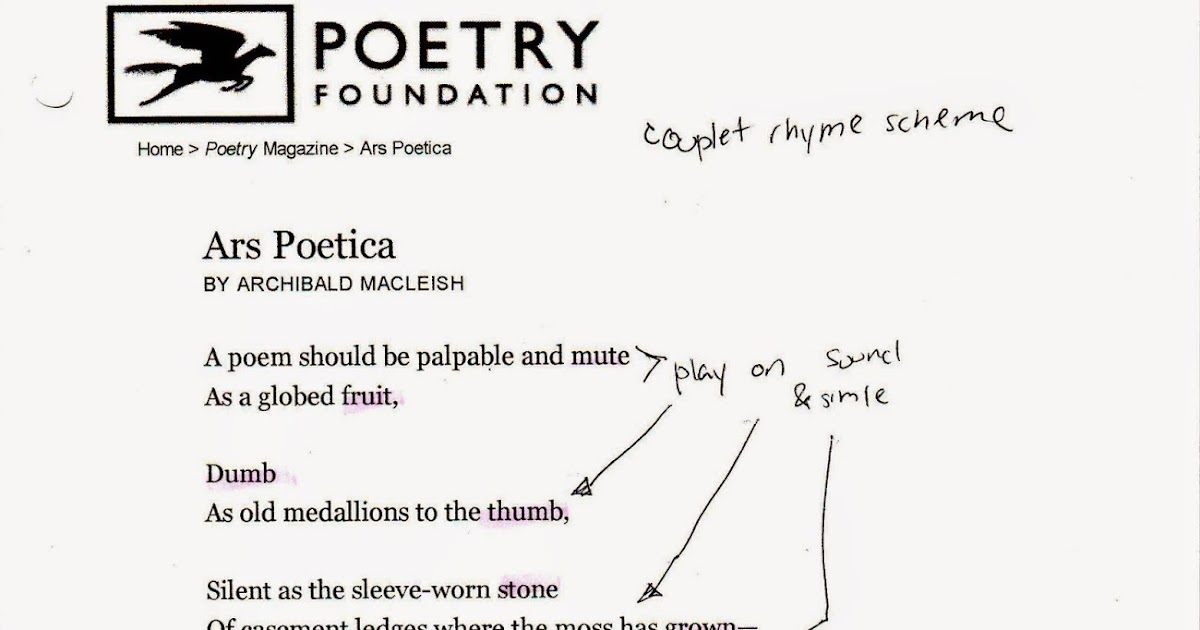 POETRY
FOUNDATION
couplet rhyme scheme
Home > Poetry Magazine > Ars Poetica
Ars Poetica
BY ARCHIBALD MACLEISH
A poem should be palpable and mute
As a globed fruit,
play on sound
& simle
Dumb
As old medallions to the thumb,
Silent as the sleeve-worn stone
Of casement ledges where the moss has grown—